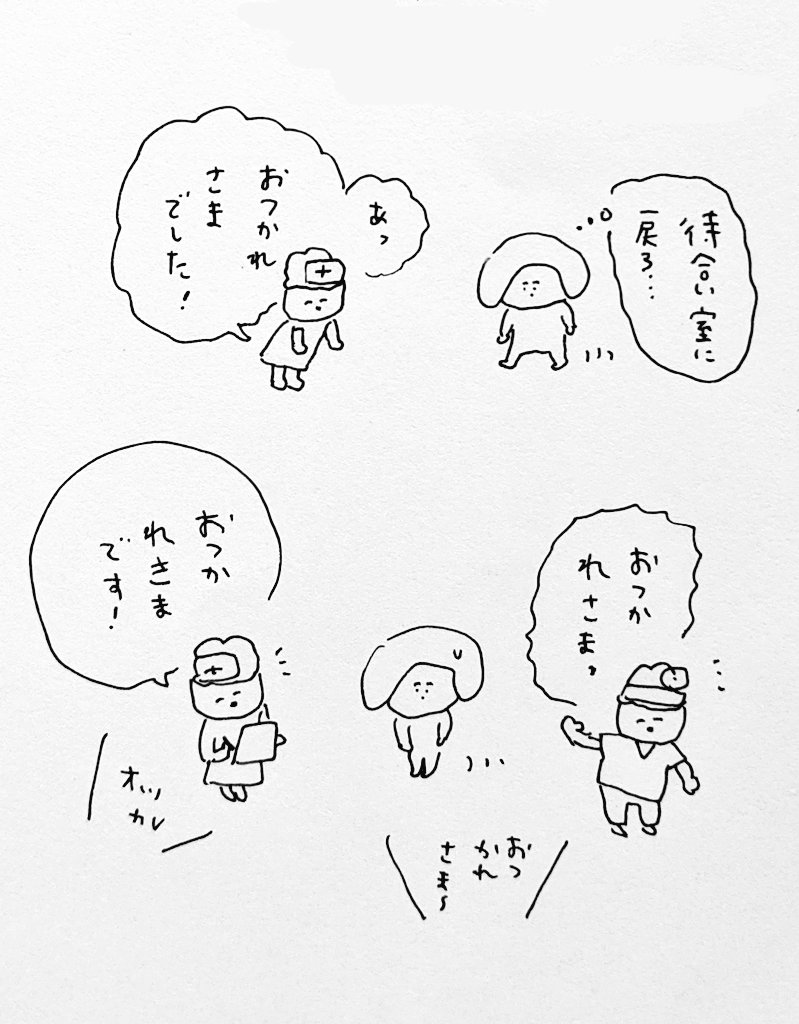 待合い室に
戻ろ…
あっ
おつかれ
さま
でした!
おつか
れさまっ
おつか
れさま
です!
おつ
かれ
さま〜
オツ
カレ